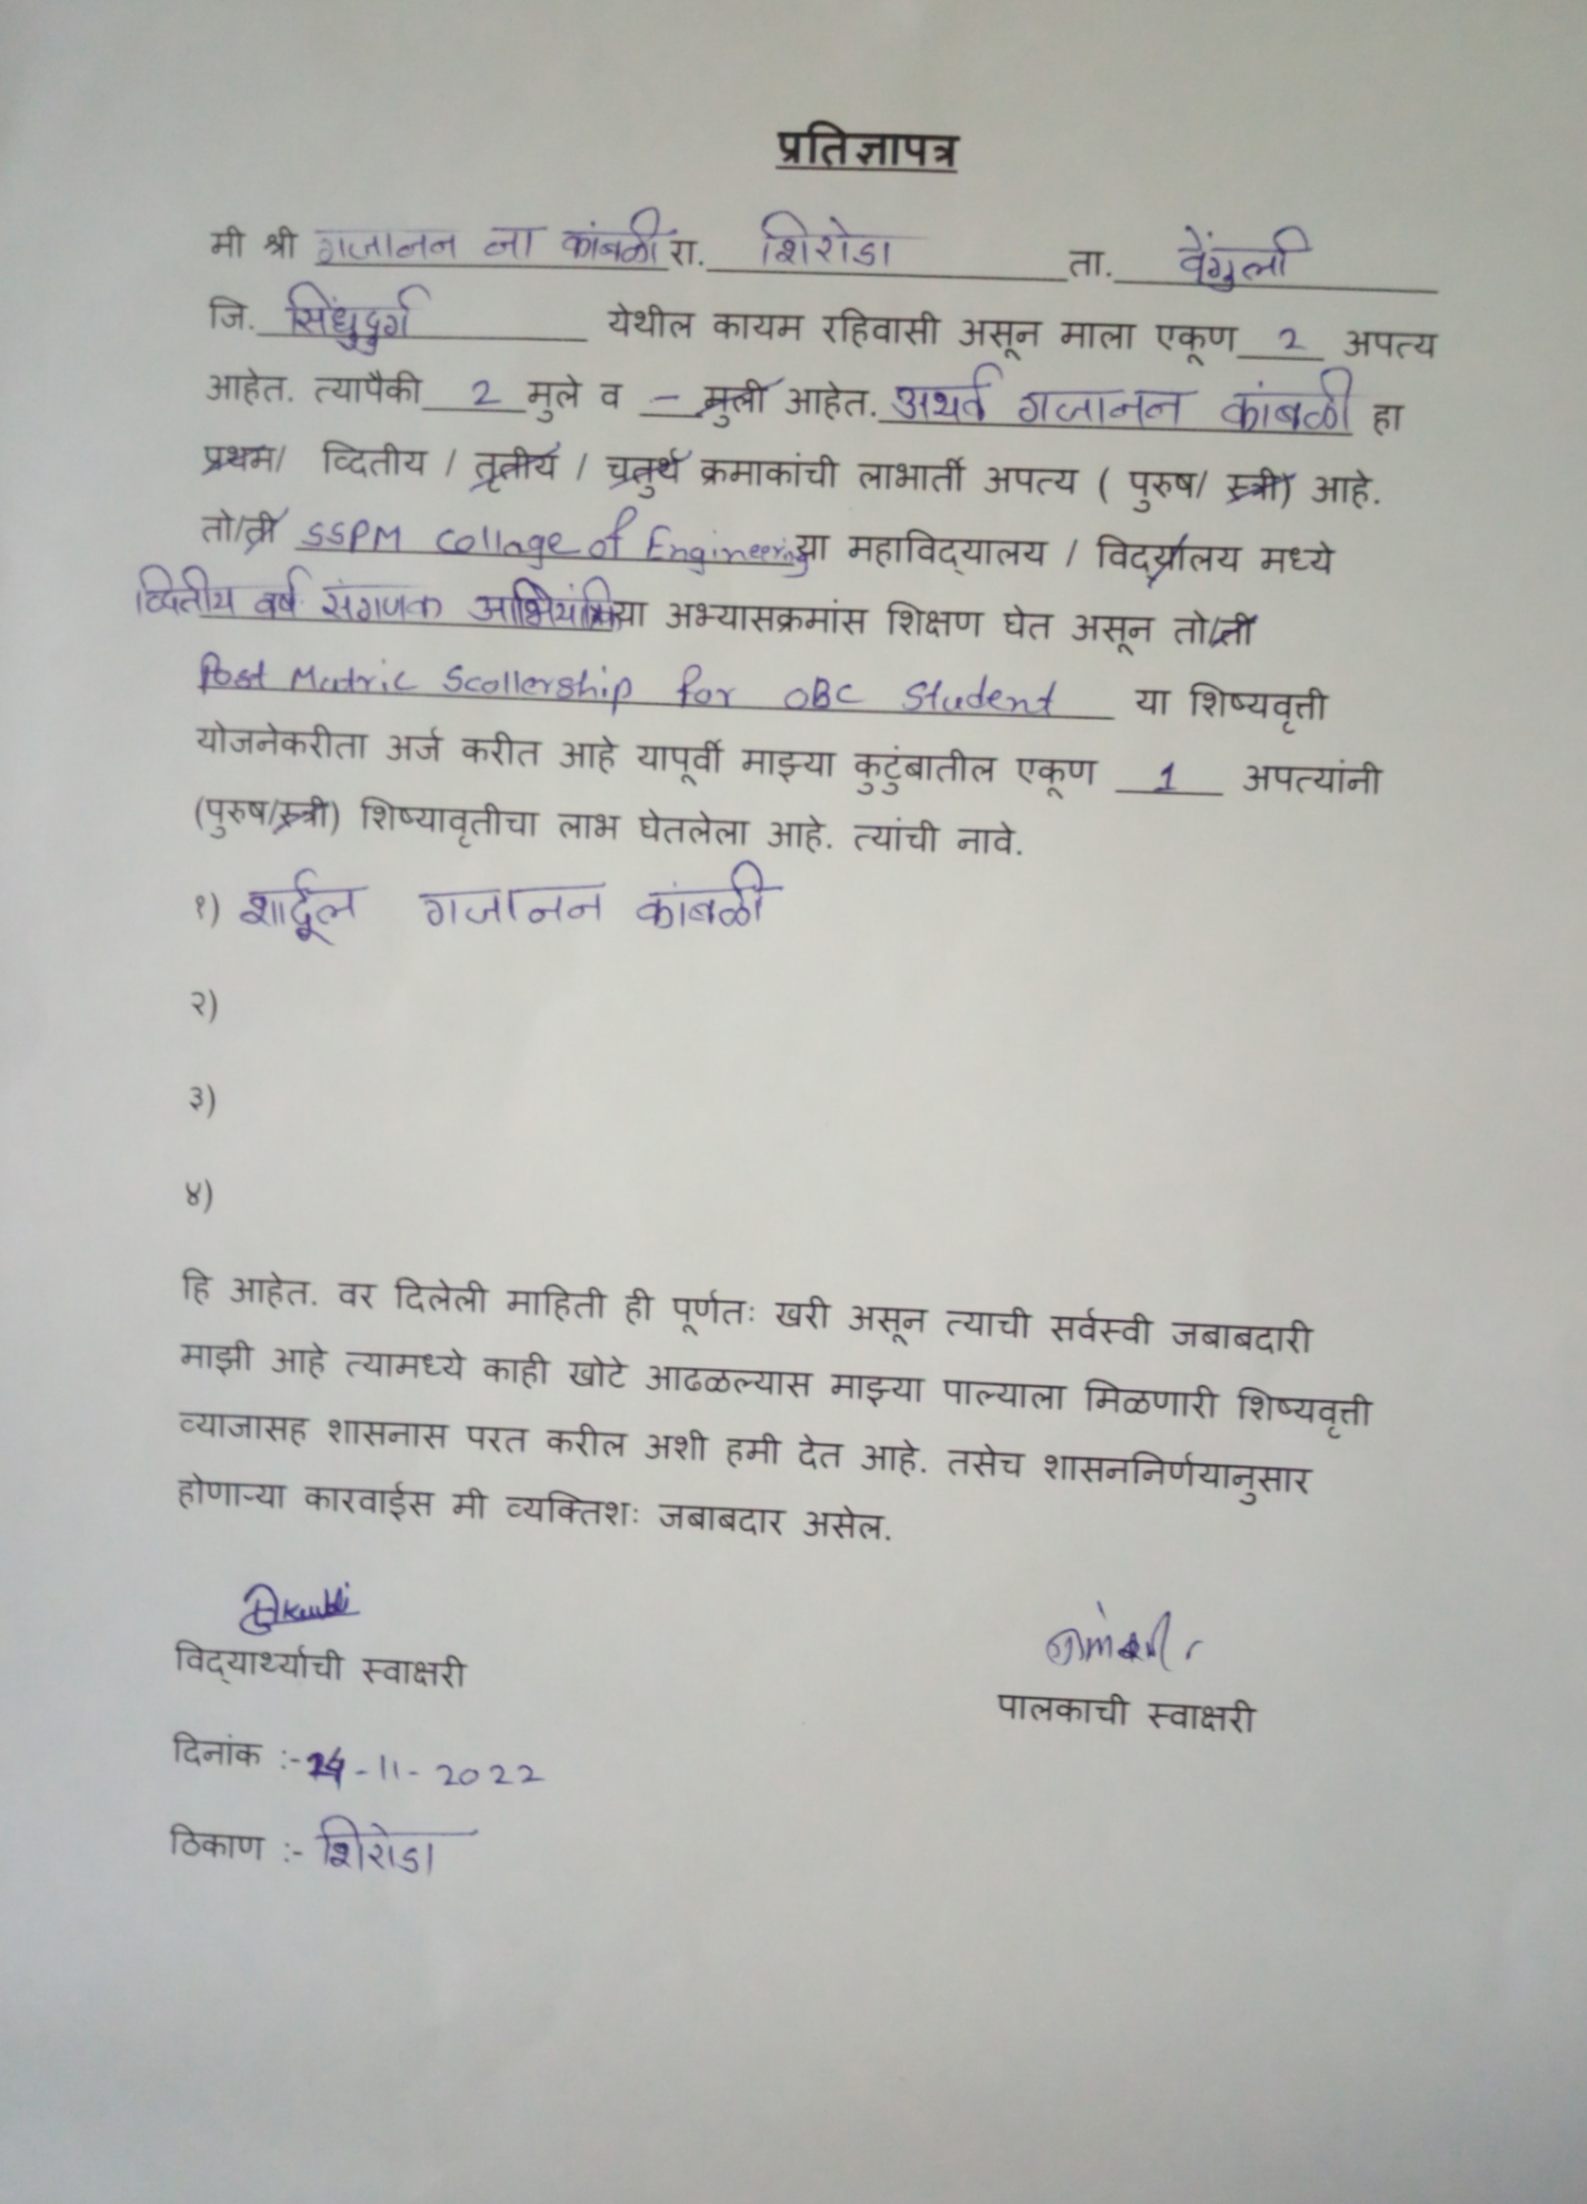 प्रतिज्ञापत्र
मी श्री गजानन ना कांबळी रा. शिरोडा ता. वेंगुर्ला
जि. सिंधुदुर्ग येथील कायम रहिवासी असून माला एकूण 2 अपत्य
आहेत. त्यापैकी 2 मुले व - मुली आहेत. अथर्व गजानन कांबळी हा
प्रथम/ व्दितीय / तृतीय / चतुर्थ क्रमाकांची लाभार्ती अपत्य ( पुरुष/ स्त्री) आहे.
तो/ती SSPM Collage of Engineering या महाविद्यालय / विद्यालय मध्ये
व्दितीय वर्ष संगणक या अभ्यासक्रमांस शिक्षण घेत असून तो/ती
Post Matric Scollership for OBC Student या शिष्यवृत्ती
योजनेकरीता अर्ज करीत आहे यापूर्वी माझ्या कुटुंबातील एकूण 1 अपत्यांनी
(पुरुष/स्त्री) शिष्यावृतीचा लाभ घेतलेला आहे. त्यांची नावे.
१) शार्दूल गजानन कांबळी
२)
३)
४)
हि आहेत. वर दिलेली माहिती ही पूर्णतः खरी असून त्याची सर्वस्वी जबाबदारी
माझी आहे त्यामध्ये काही खोटे आढळल्यास माझ्या पाल्याला मिळणारी शिष्यवृत्ती
व्याजासह शासनास परत करील अशी हमी देत आहे. तसेच शासननिर्णयानुसार
होणाऱ्या कारवाईस मी व्यक्तिशः जबाबदार असेल.
विद्यार्थ्याची स्वाक्षरी
पालकाची स्वाक्षरी
दिनांक :- 24-11-2022
ठिकाण :- शिरोडा